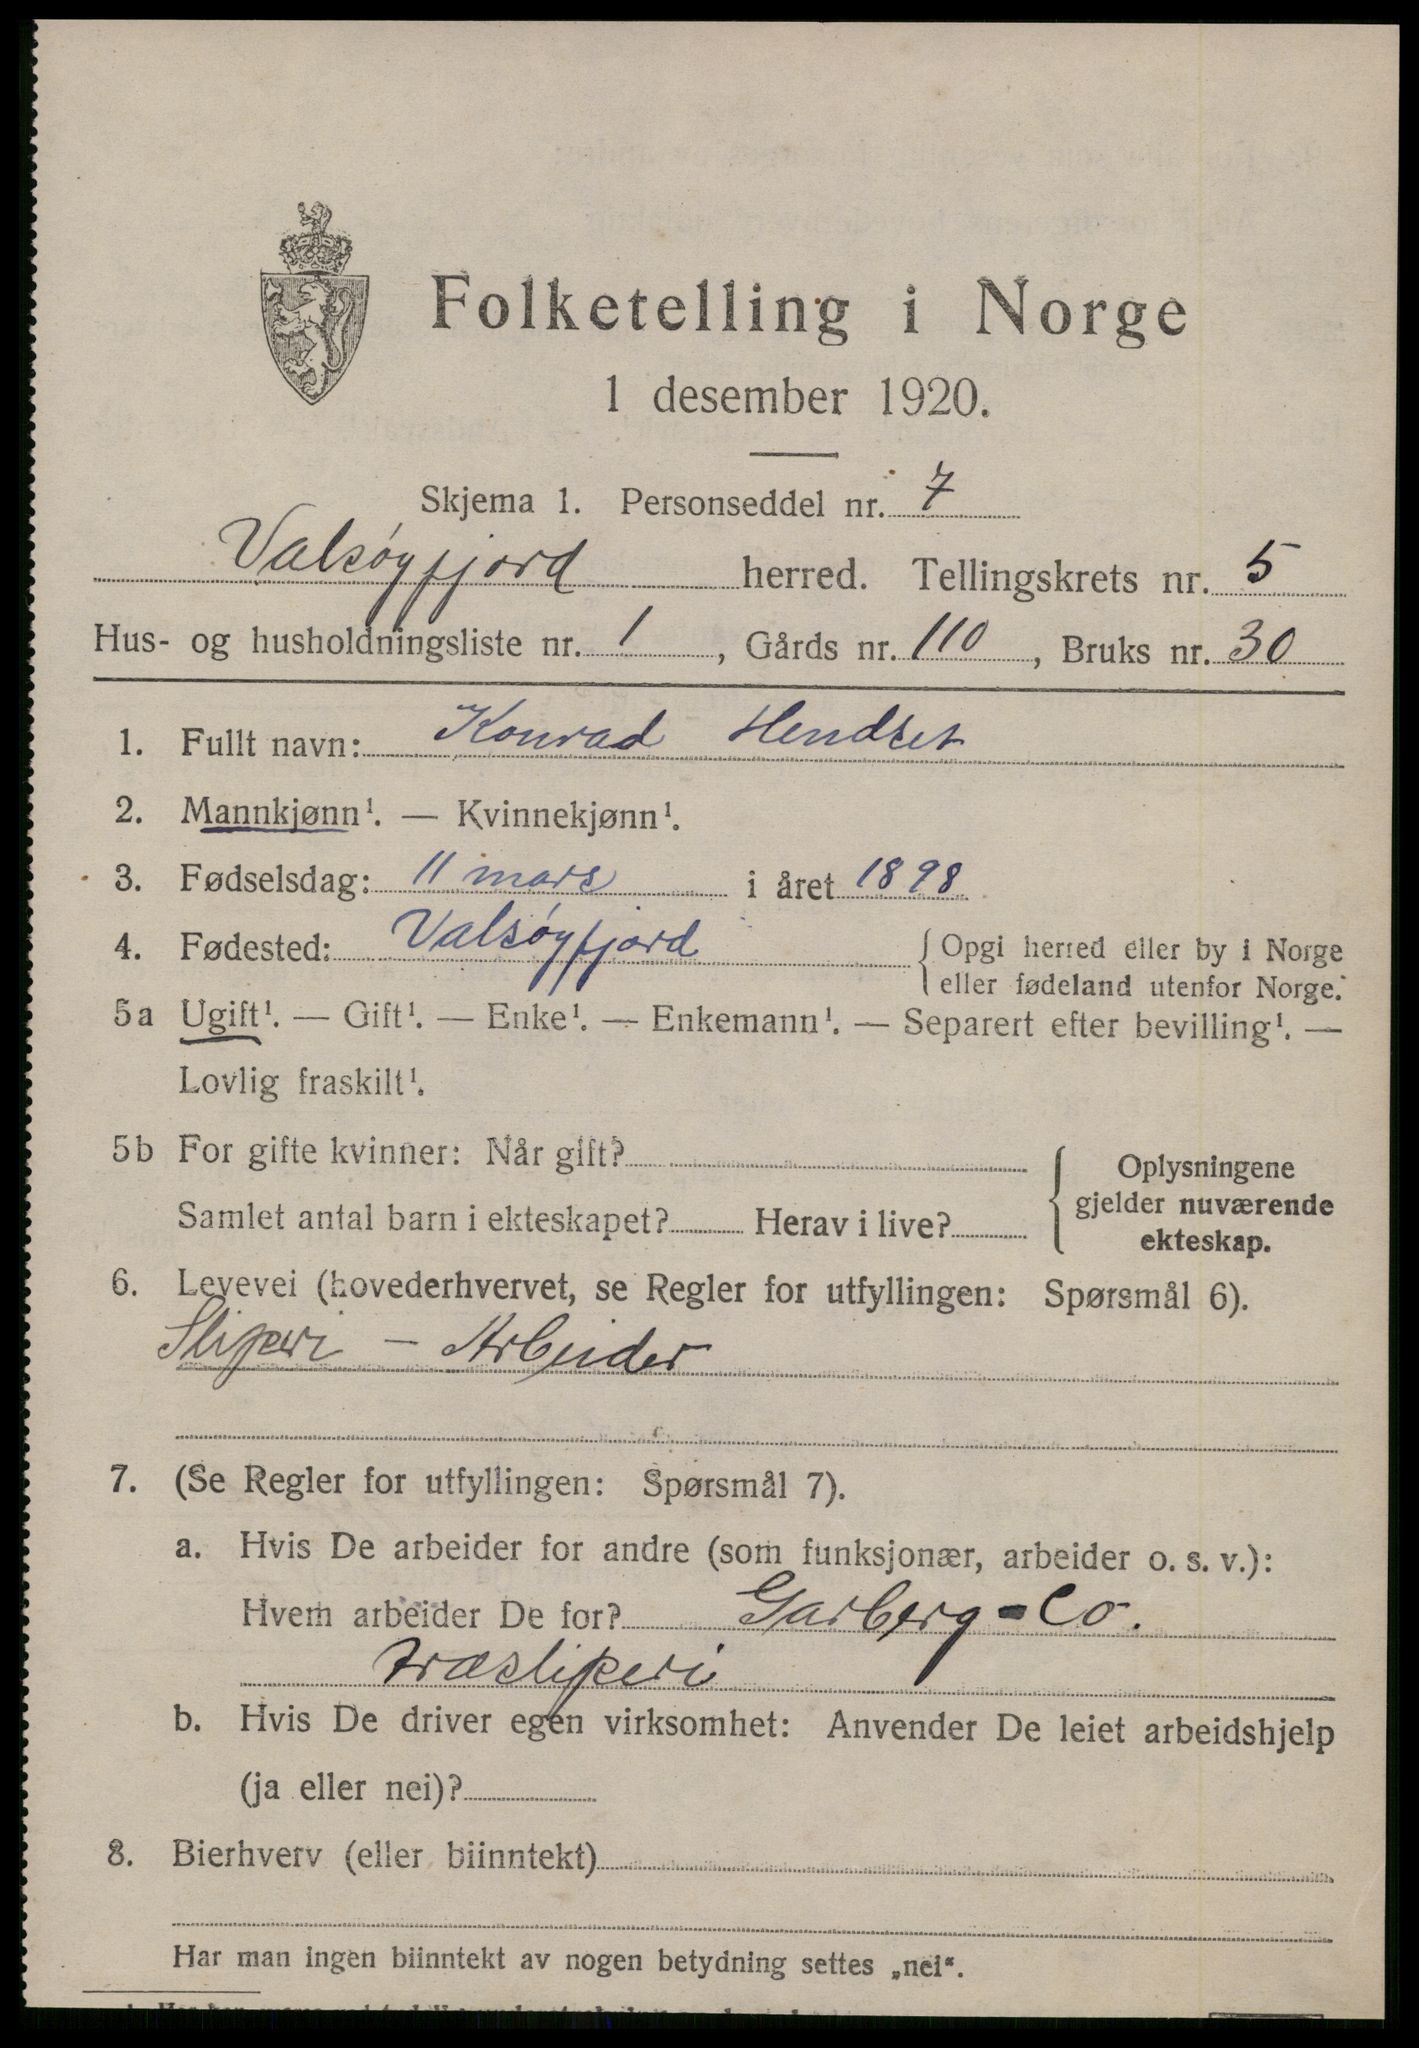 Folketelling i Norge
1 desember 1920.
Skjema 1. Personseddel nr. 7
Valsøyfjord herred. Tellingskrets nr. 5
Hus- og husholdningsliste nr. 1, Gårds nr. 110, Bruks nr. 30
1. Fullt navn: Konrad Hendset
2. Mannkjønn¹. — Kvinnekjønn¹.
3. Fødselsdag: 11 mars i året 1898
4. Fødested: Valsøyfjord { Opgi herred eller by i Norge
eller fødeland utenfor Norge.
5a Ugift¹. — Gift¹. — Enke¹. — Enkemann¹. — Separert efter bevilling¹. —
Lovlig fraskilt¹.
5b For gifte kvinner: Når gift? { Oplysningene
gjelder nuværende
Samlet antal barn i ekteskapet? Herav i live?
ekteskap.
6. Levevei (hovederhvervet, se Regler for utfyllingen: Spørsmål 6).
Sliperi - Arbeider
7. (Se Regler for utfyllingen: Spørsmål 7).
a. Hvis De arbeider for andre (som funksjonær, arbeider o. s. v.):
Hvem arbeider De for? Garberg - Co.
træsliperi
b. Hvis De driver egen virksomhet: Anvender De leiet arbeidshjelp
(ja eller nei)?
8. Bierhverv (eller biinntekt)
Har man ingen biinntekt av nogen betydning settes „nei“.